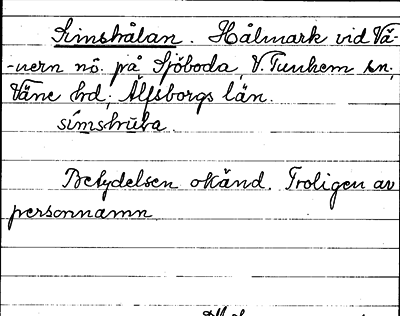 Simshålan. Hålmark vid Vä-
-nern nö. på Sjöboda, V. Tunhem sn,
Väne hd, Älfsborgs län.
simshula.
Betydelsen okänd. Troligen av
personnamn